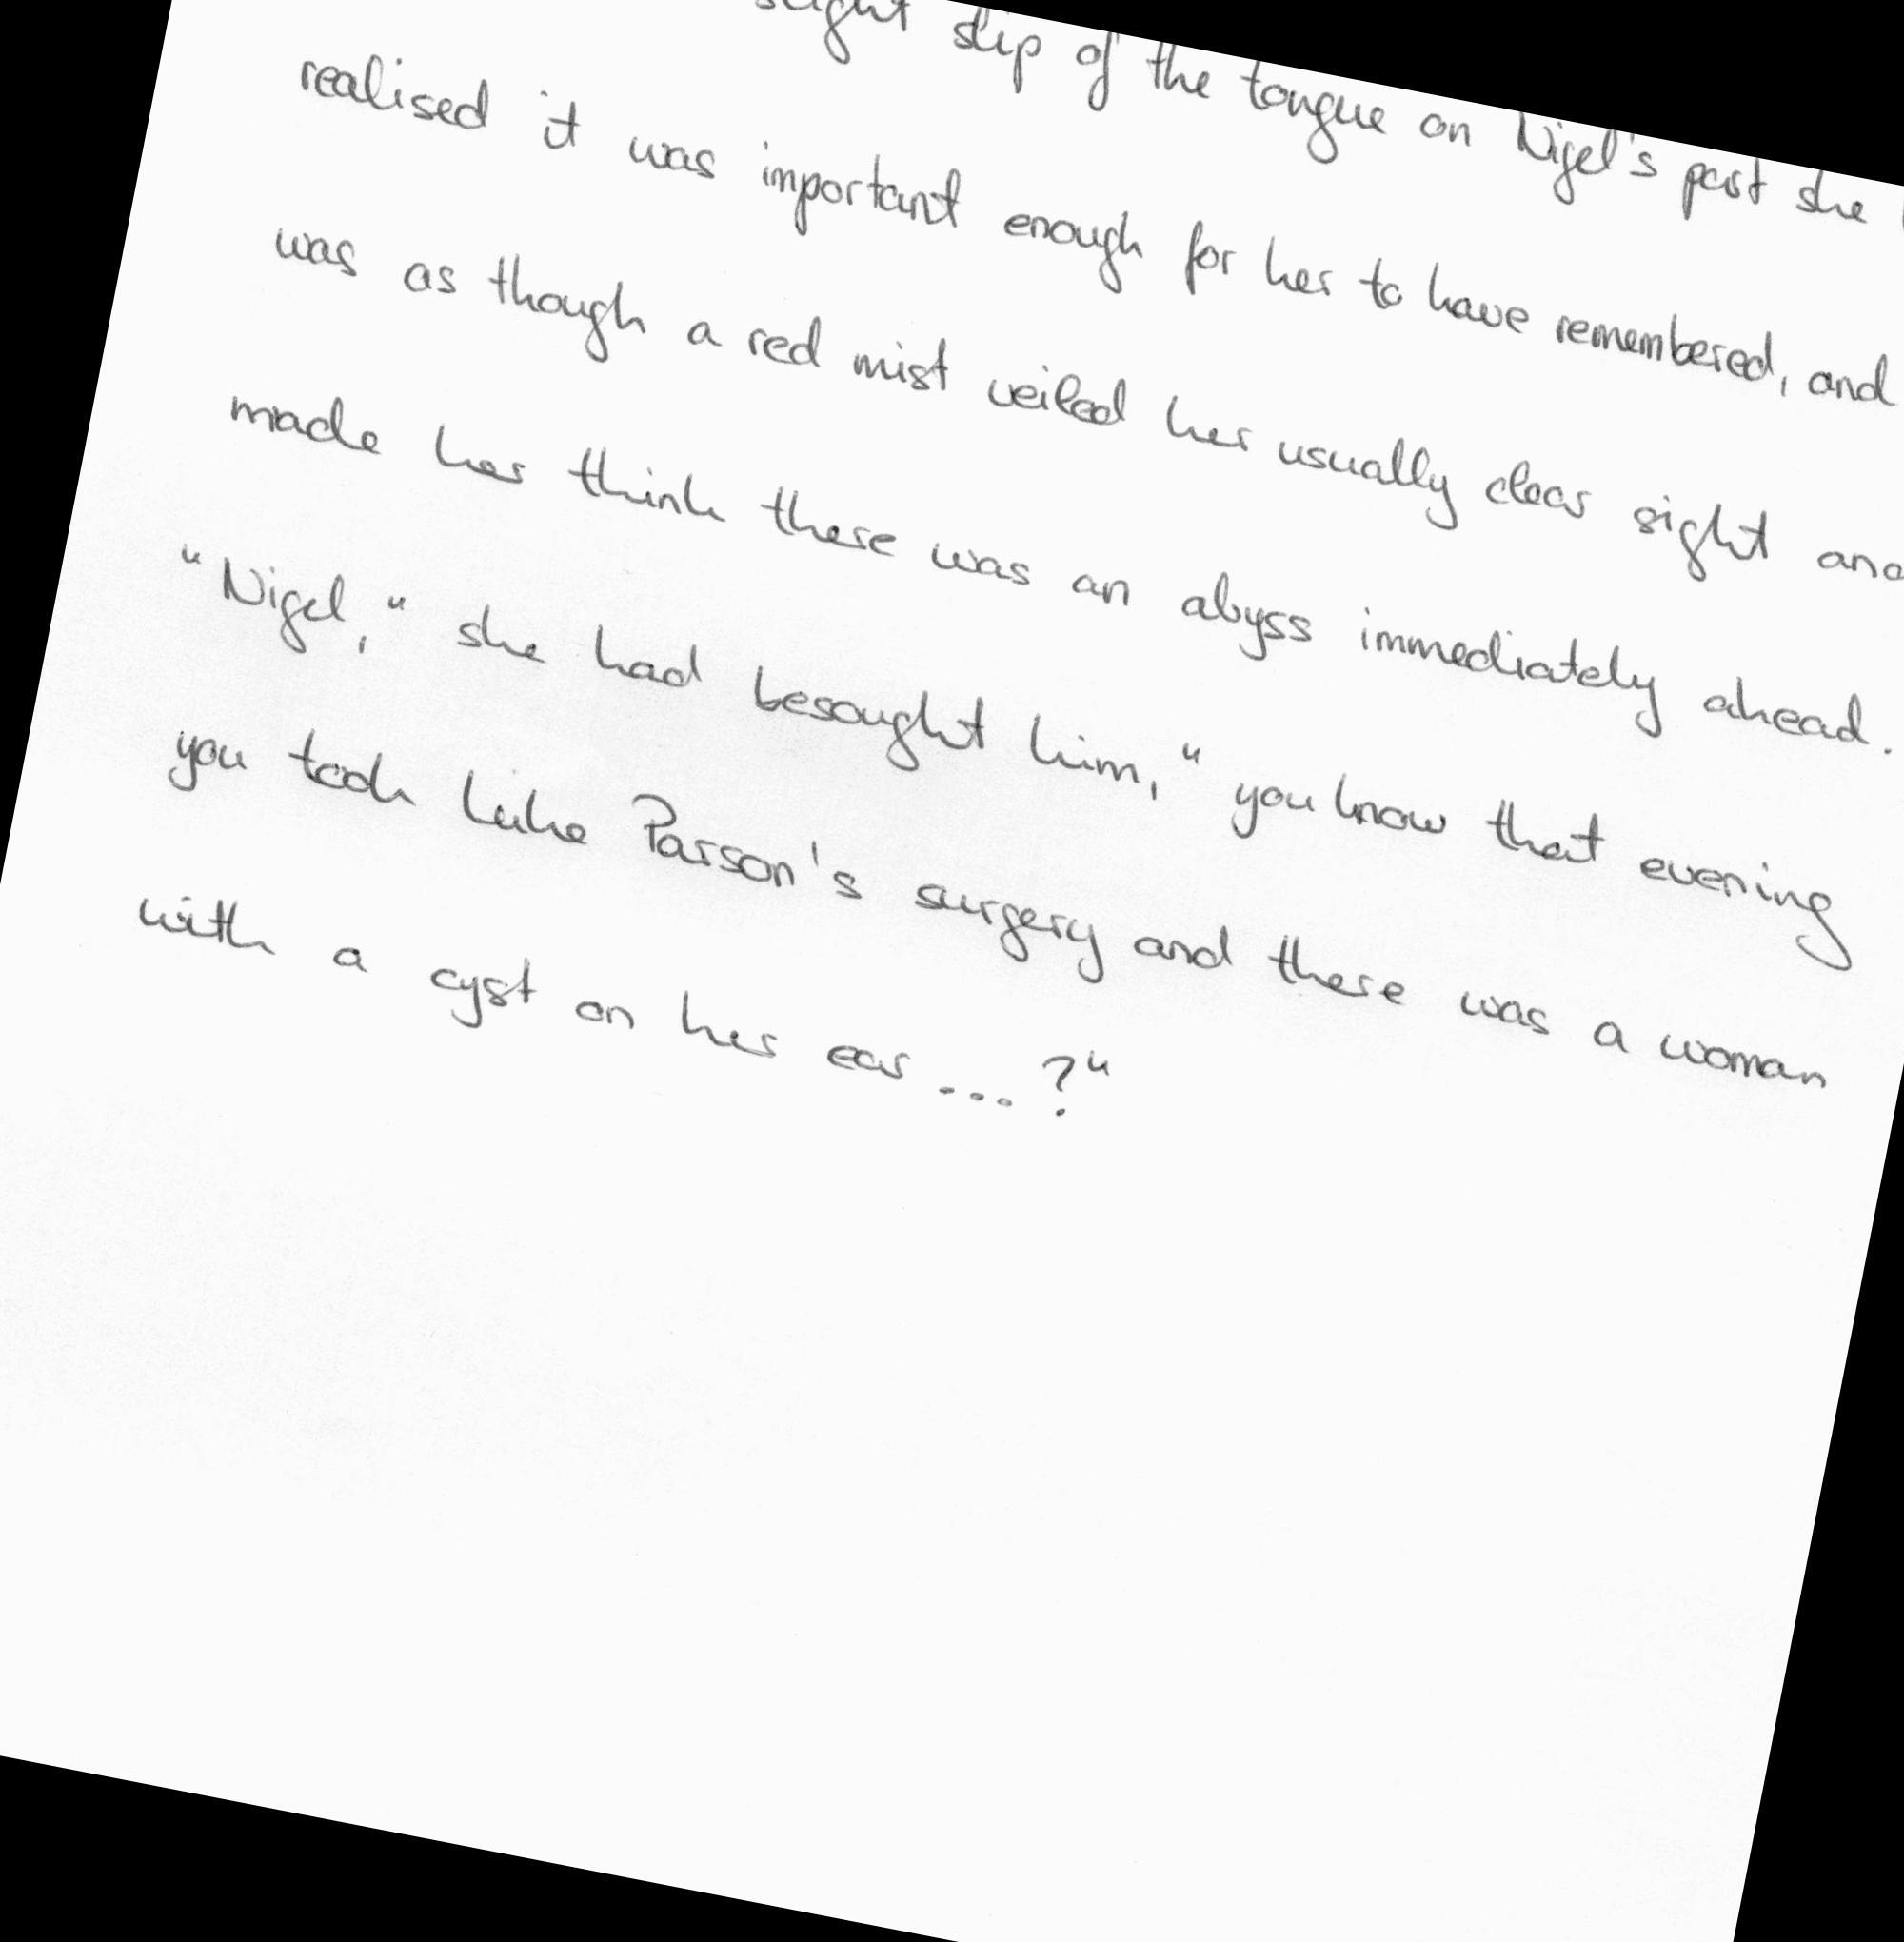 slight slip of the tongue on Nigel's part she
realised it was important enough for her to have remembered, and
was as though a red mist veiled her usually clear sight and
made her think there was an abyss immediately ahead.
"Nigel," she had besought him, "you know that evening
you took Luke Parson's surgery and there was a woman
with a cyst on her ear ... ?"